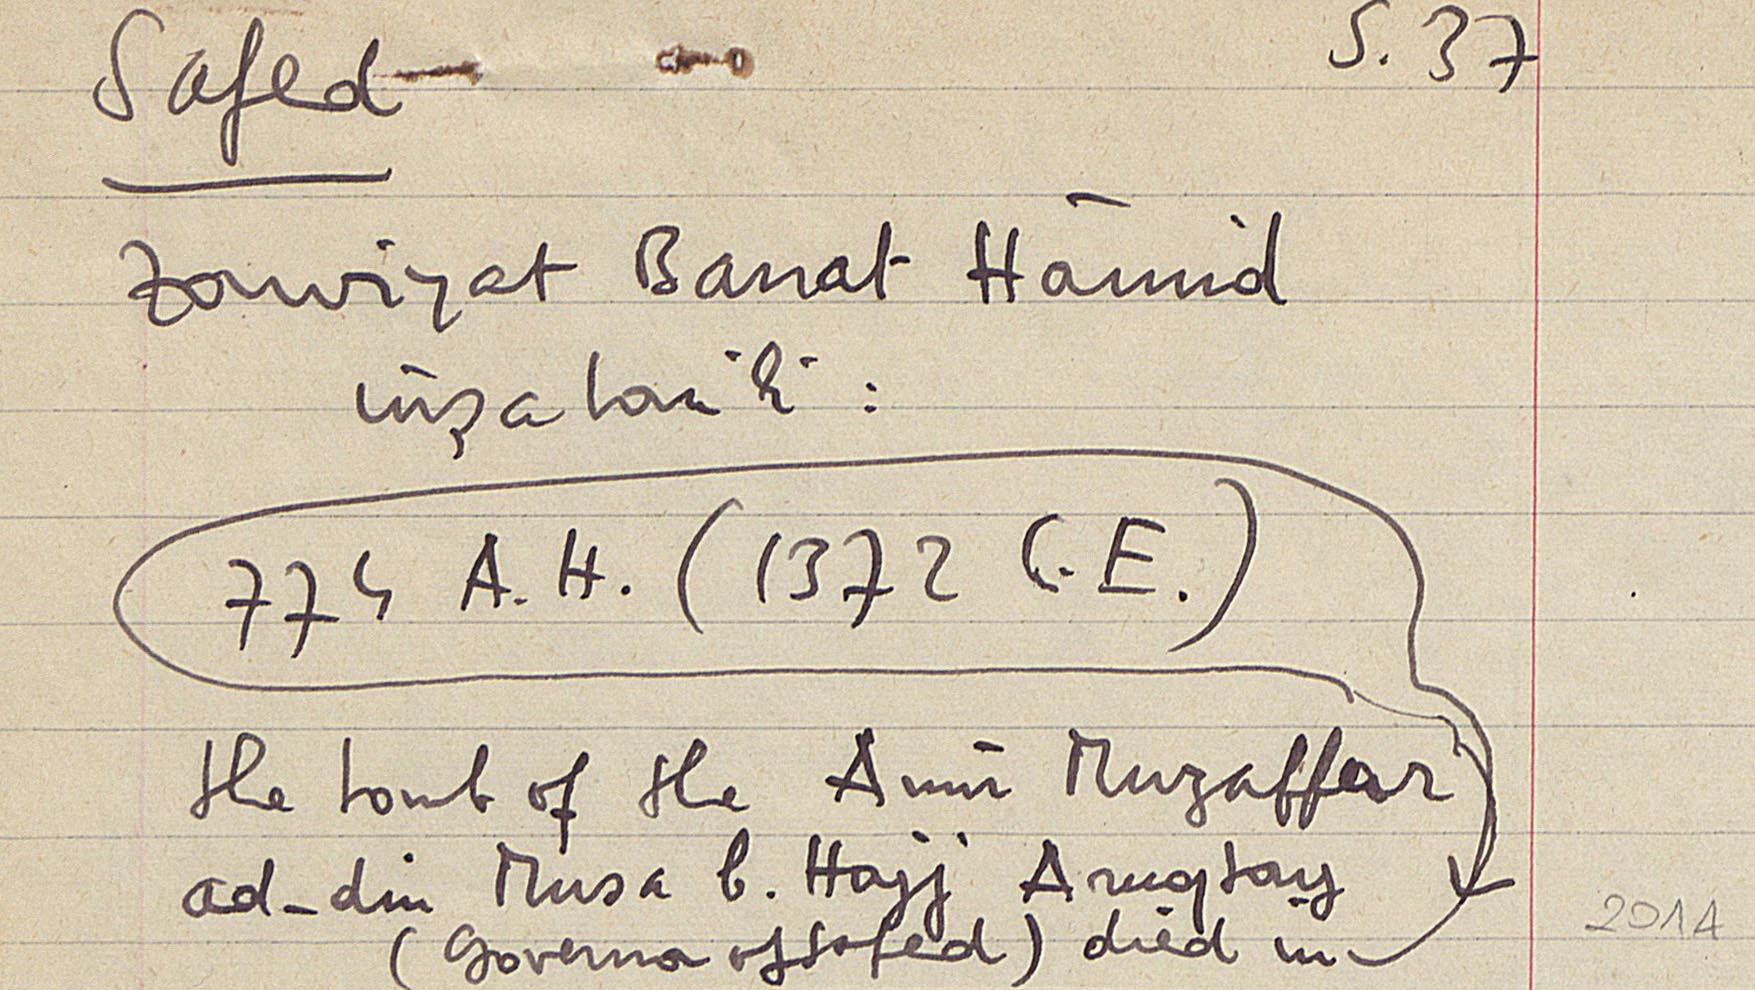 Safed S. 37
Zawiyat Banat Hāmid
inşa tarihi :
774 A.H. (1372 C.E.)
the tomb of the Amir Muzaffar
ad-din Musa b. Hajj Aruqtay
(Governor of Safed) died in
2014